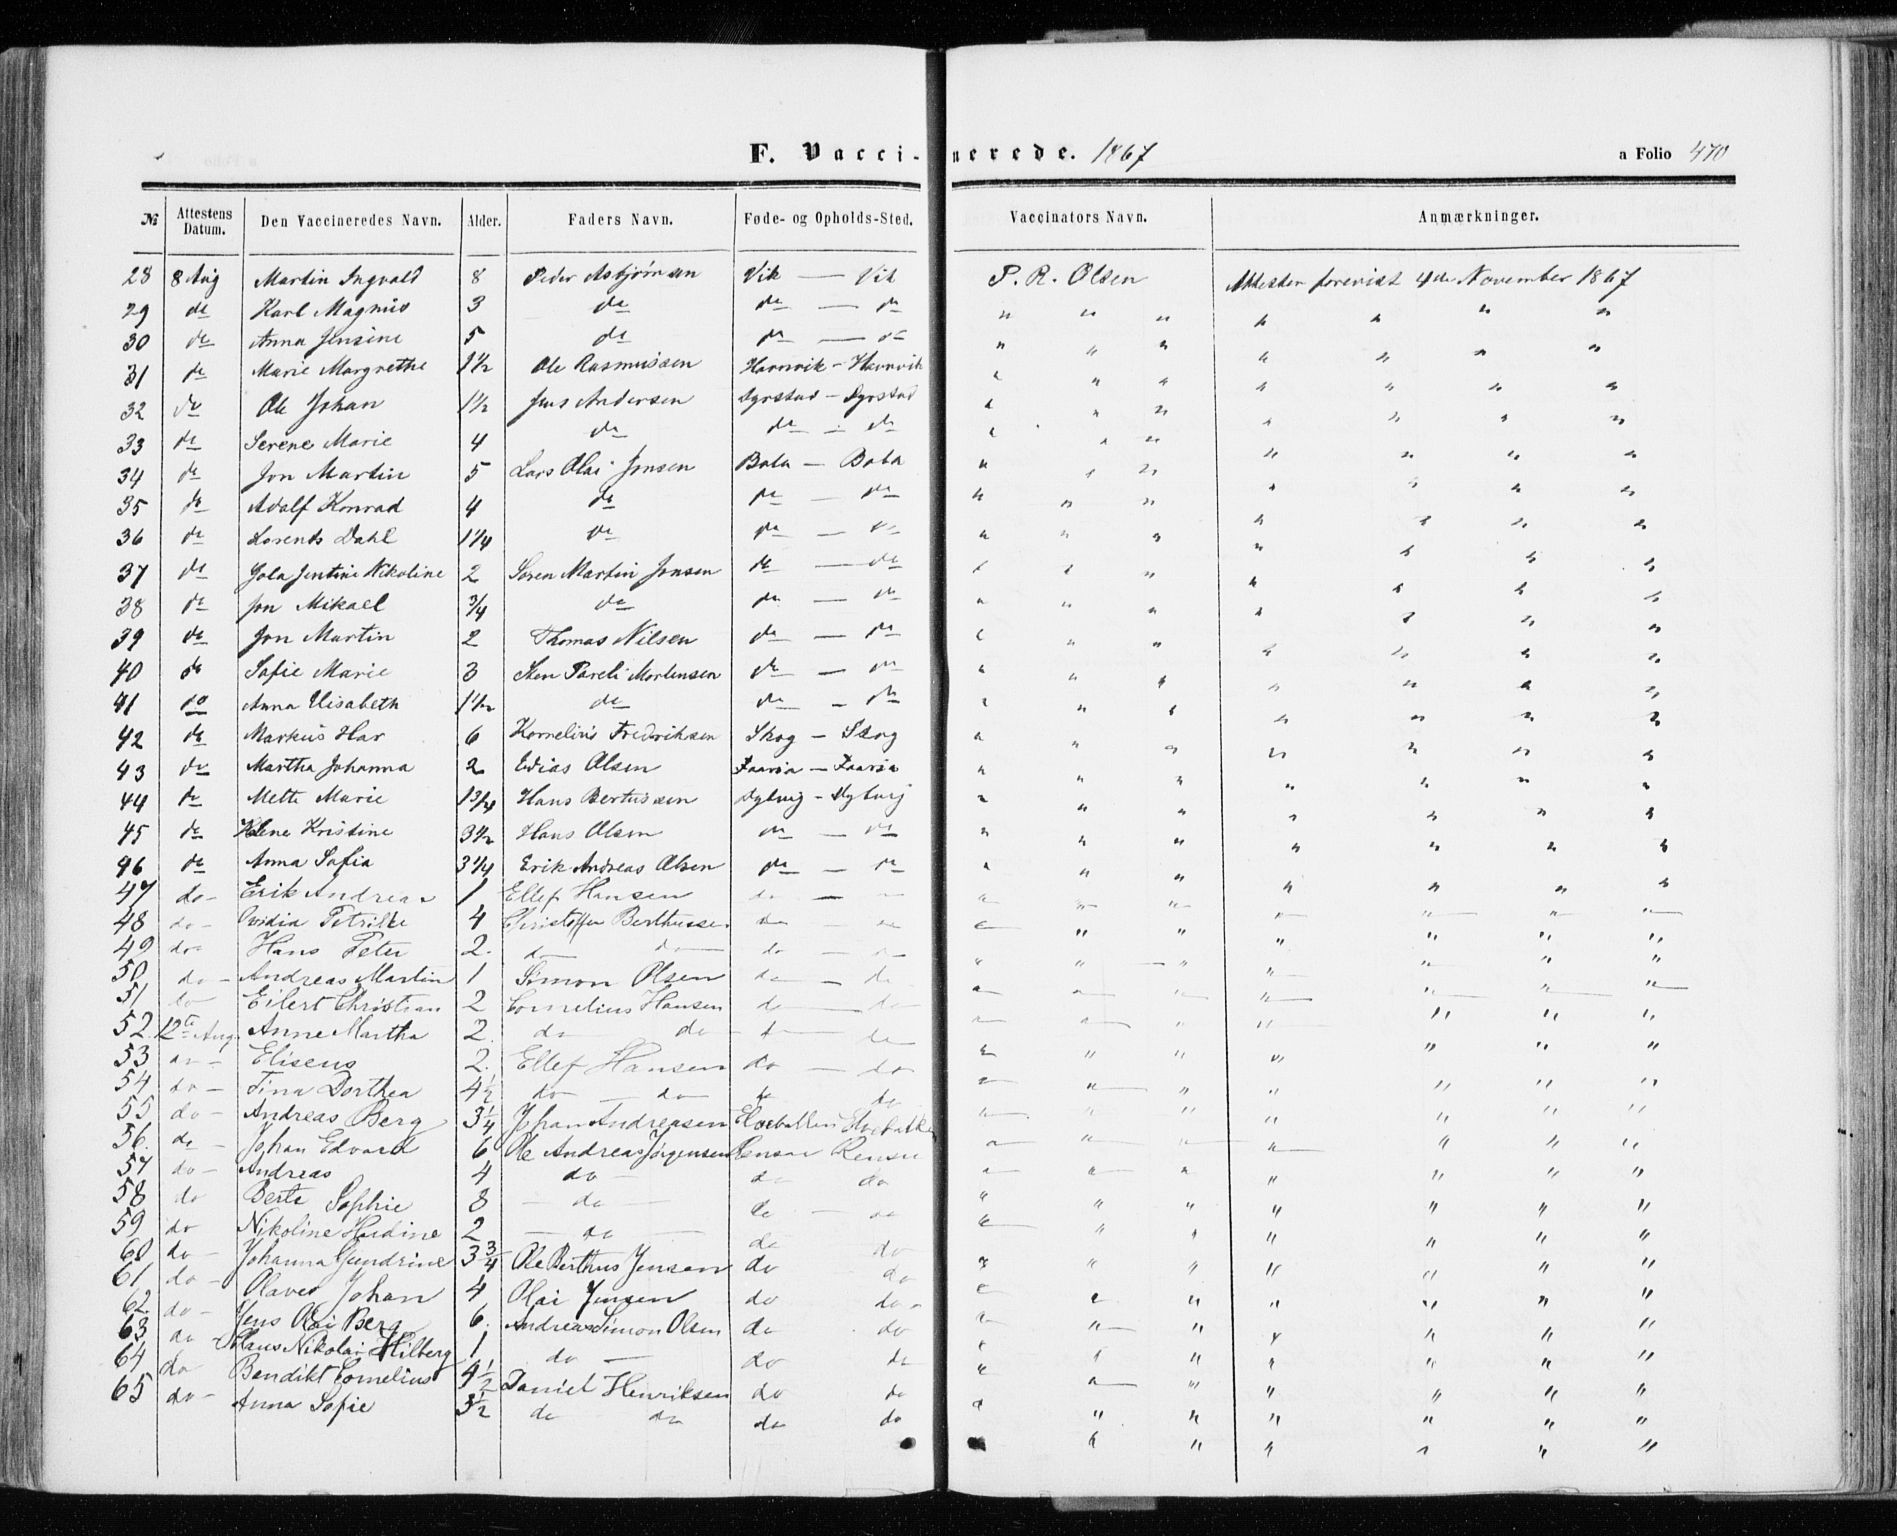 F. Vaccinerede. 1867
a Folio 470
№ Attestens Datum. Den Vaccineredes Navn. Alder. Faders Navn. Føde- og Opholds-Sted. Vaccinators Navn. Anmærkninger.
28 8 Aug Martin Ingvald 8 Peder Asbjørnsen Vik — Vik P. R. Olsen Attesten forevist 4de November 1867
29 do Karl Magnus 3 do do — do " " " " " " "
30 do Anna Jensine 5 do do — do " " " " " " "
31 do Marie Margrethe 1½ Ole Rasmussen Havnvik — Havnvik " " " " " " "
32 do Ole Johan 1½ Jens Andersen Dyrstad — Dyrstad " " " " " " "
33 do Serene Marie 4 do do — do " " " " " " "
34 do Jon Martin 5 Lars Olai Jonsen Bola — Bola " " " " " " "
35 do Adolf Konrad 4 do do — do " " " " " " "
36 do Lorents Dahl 1¼ do do — do " " " " " " "
37 do Jentine Nikoline 2 Søren Martin Jonsen do — do " " " " " " "
38 do Jon Mikael ¾ do do — do " " " " " " "
39 do Jon Martin 2 Thomas Nilsen do — do " " " " " " "
40 do Sofie Marie 3 Sten Pareli Mortensen do — do " " " " " " "
41 do Anna Elisabeth 1½ do do — do " " " " " " "
42 do Markus Har 6 Kornelius Fredriksen Skog — Skog " " " " " " "
43 do Martha Johanna 2 Edias Olsen " " " " " " "
44 do Mette Marie 1¾ Hans Bertussen Dybvig — Dybvig " " " " " " "
45 do Helene Kristine 3½ Hans Olsen do — do " " " " " " "
46 do Anna Sofia 3¼ Erik Andreas Olsen do — do " " " " " " "
47 do — Erik Andreas 1 Ellef Hansen do — do " " " " " " "
48 do — Ovidia Petrikke 4 Christoffer Berthussen do — do " " " " " " "
49 do — Hans Peter 2. do do do — do " " " " " " "
50 do — Andreas Martin 1 Simon Olsen do — do " " " " " " "
51 do Eilert Christian 2 Cornelius Hansen do — do " " " " " " "
52 12te Aug. Anne Martha 2. do do — do — do " " " " " " "
53 do — Eliseus 2. Ellef Hansen do — do " " " " " " "
54 do — Tina Dorthea 4½ do — do — do do " " " " " " "
55 do — Andreas Berg 3¼ Johan Andreasen Elvebakken Elvebakken " " " " " " "
56. do — Johan Edvard 6 Ole Andreas Jørgensen Rensaa Rensaa " " " " " " "
57 do — Andreas 4 do — do do " " " " " " "
58 do Berte Sophie 8 — do — do — do " " " " " " "
59 do Nikoline Hardine 2 — do — do do " " " " " " "
60 do — Johanna Gundrine 3¾ Ole Berthus Jensen do do " " " " " " "
61 do — Olaves Johan 4 Olai Jensen do do — " " " " " " "
62. do — Jens Olai Berg 6. Andreas Simon Olsen do do " " " " " " "
63 do — Klaus Nikolai Hilberg 1 do — do do " " " " " " "
64 do Bendikt Cornelius 4½ Daniel Henriksen do do " " " " " " "
65 do — Anna Sofie 3½ do do do do " " " " " " "